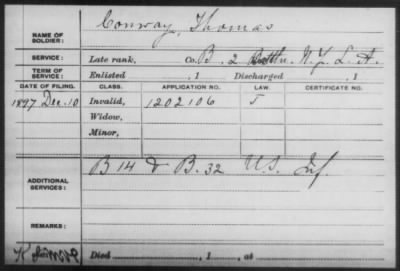 Conway, Thomas
NAME OF SOLDIER:
SERVICE: Late rank, Co. B. 2 Battn. N.Y. L. A.
TERM OF SERVICE: Enlisted , 1 Discharged , 1
DATE OF FILING. CLASS. APPLICATION NO. LAW. CERTIFICATE NO.
1897 Dec. 10 Invalid, 1202106 J
Widow,
Minor,
ADDITIONAL SERVICES: B 14 & B. 32 U.S. Inf.
REMARKS:
Died , 1 , at